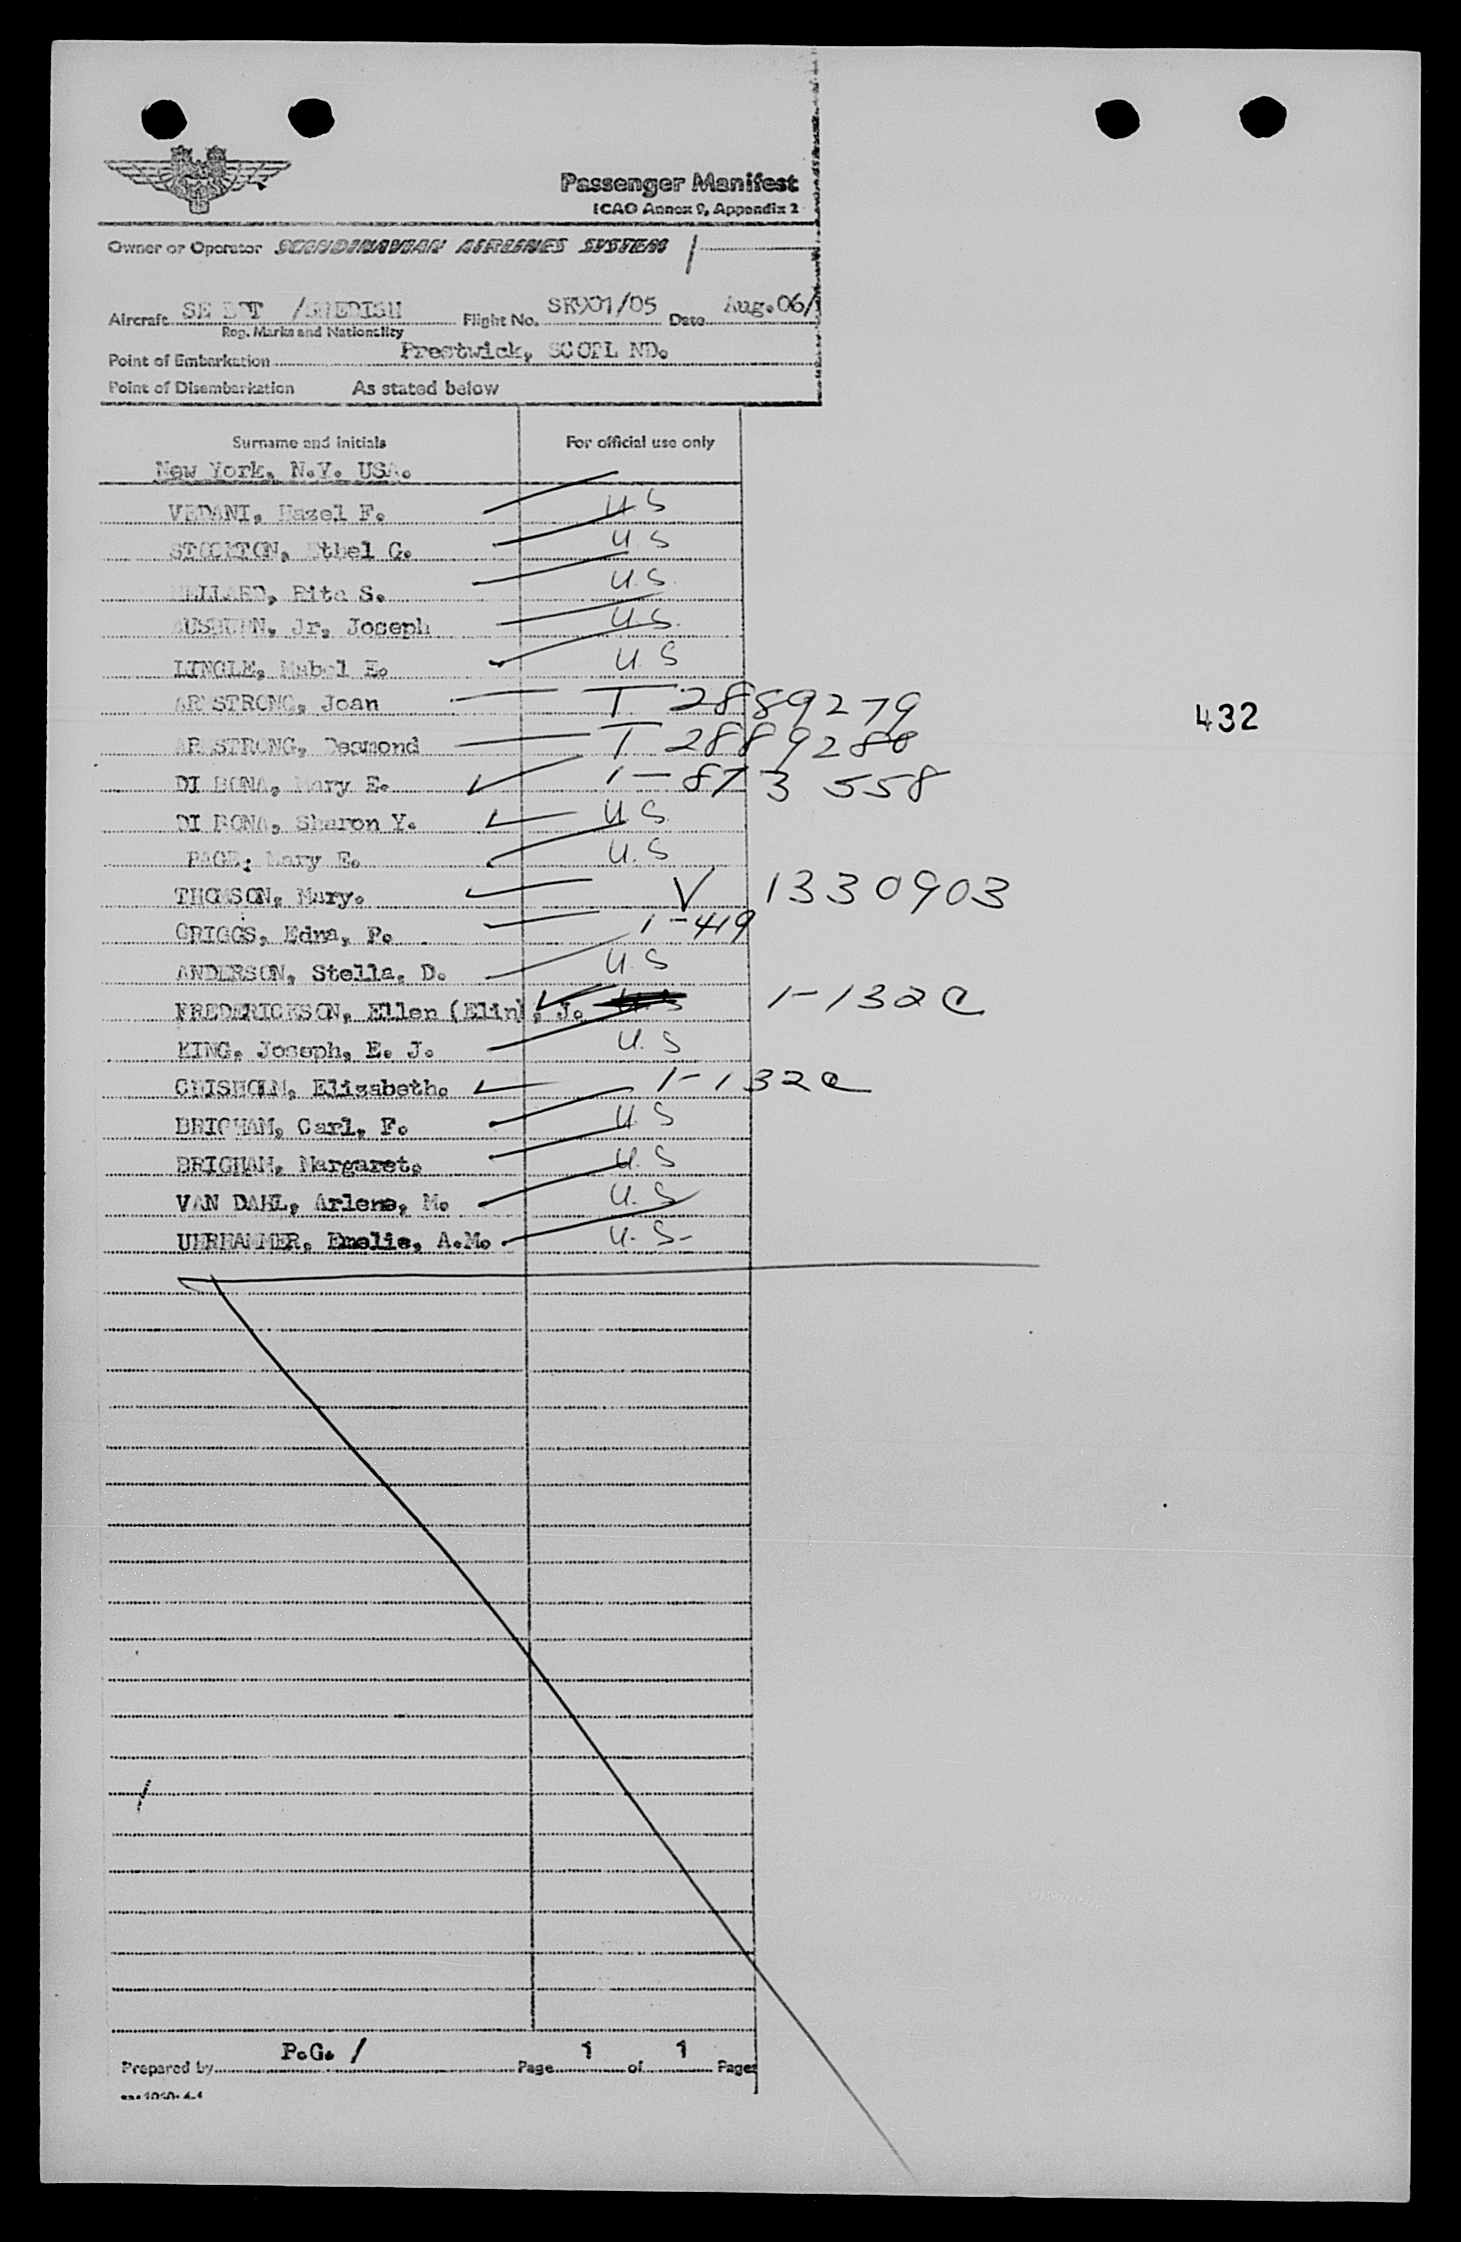 Passenger Manifest
ICAO Annex 9, Appendix 2
Owner or Operator SCANDINAVIAN AIRLINES SYSTEM /
Aircraft SE /SWEDISH Flight No. SK901/05 Date Aug.06/
Reg. Marks and Nationality
Point of Embarkation Prestwick, SCOTL ND.
Point of Disembarkation As stated below
Surname and initials For official use only
New York, N.Y. USA.
VEDANI, Hazel F. U S
STOCKTON, Ethel C. U. S
Rita S. U.S.
Jr, Joseph U.S.
LINGLE, Mabel E. U. S
ARMSTRONG, Joan T 2889279
ARMSTRONG, Desmond T 2889280
432
DI BONA, Mary E. 1-873 558
DI BONA, Sharon Y. U S.
PAGE; Mary E. U. S
THOMSON, Mary. V 1330903
GRIGGS, Edna, P. 1-419
ANDERSON, Stella, D. U. S
FREDERICKSON, Ellen (Elin), J. U S 1-132 C
KING, Joseph, E. J. U. S
CHISHOLM, Elizabeth. 1-132 C
BRIGHAM, Carl, F. U S
BRIGHAM, Margaret. U. S
VAN DAHL, Arlene, M. U. S
UHRHAMMER, Emelie, A.M. U. S-
Prepared by P.G. / Page 1 of 1 Pages